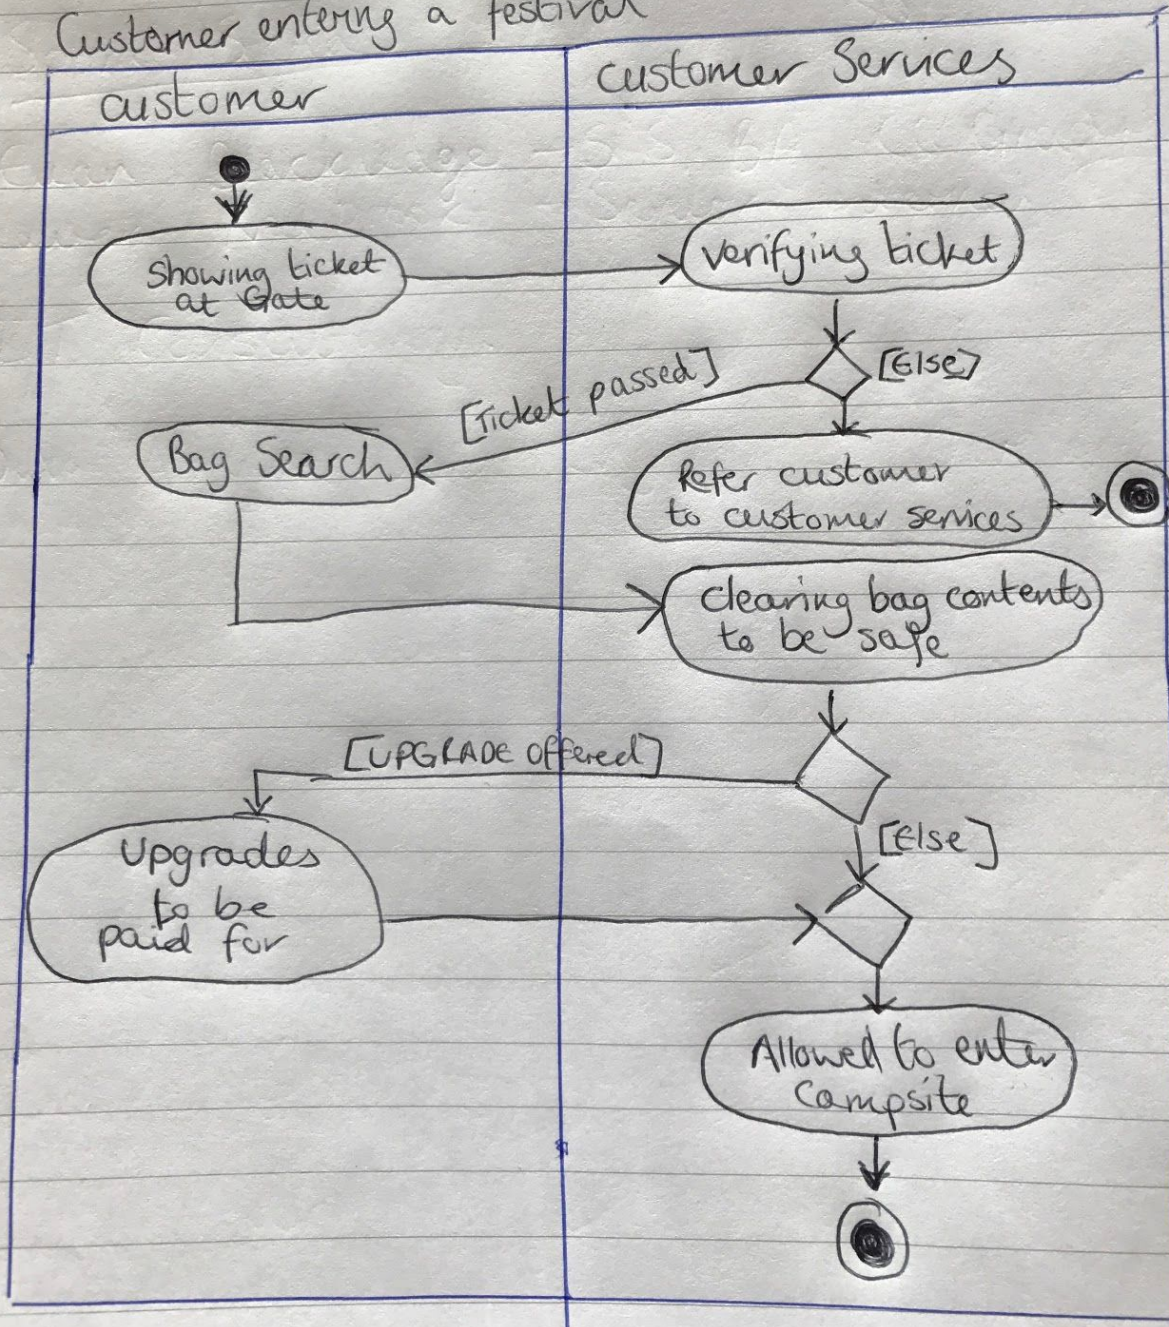 Customer entering a festival
customer
Customer Services
Showing ticket
at Gate
Verifying ticket
[Else]
[Ticket passed]
Bag Search
Refer customer
to customer services
Clearing bag contents
to be safe
[UPGRADE Offered]
[Else]
Upgrades
to be
paid for
Allowed to enter
Campsite